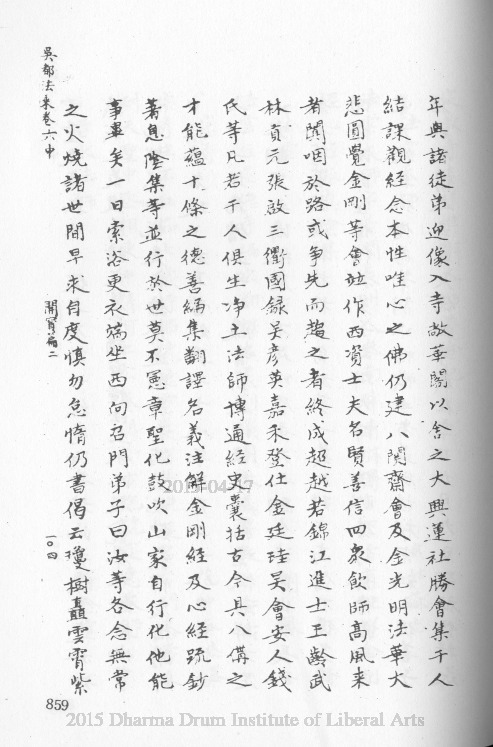 年與諸徒弟迎像入寺敞華閣以舍之大興蓮社勝會集千人
結課觀經念本性唯心之佛仍建八関齋會及金光明法華大
悲圓覺金剛等會並作西資士夫名賢善信四衆飲師高風来
者闐咽於路或争先而趨之者終成超越若錦江進士王齡武
林貢元張啟三衢國録吴彥英嘉禾登仕金廷珪吴會安人錢
氏等凡若干人俱生净土法師博通經史囊括古今具八備之
才能蘊十條之德善編集翻譯名義注解金剛經及心經疏鈔
著息陰集等並行於世莫不憲章聖化鼓吹山家自行化他能
事畢矣一日索浴更衣端坐西向召門弟子曰汝等各念無常
之火燒諸世間早求自度慎勿怠惰仍書偈云瓊樹矗雲霄紫
吳都法乘卷六中
開寶篇二
一〇四
859
2015-04-17
2015 Dharma Drum Institute of Liberal Arts